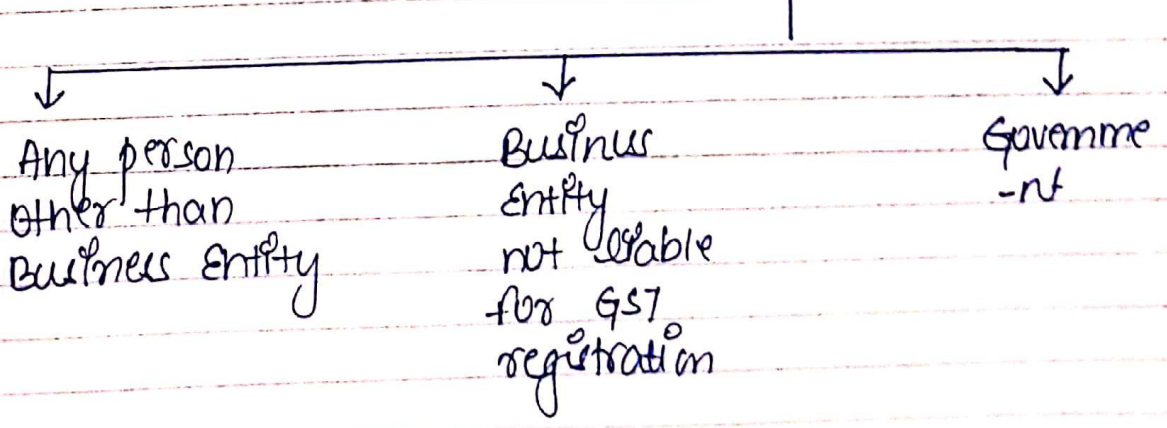 Any person
other than
Business Entity
Businus
Entity
not leiable
for GST
registration
Governme
-nt